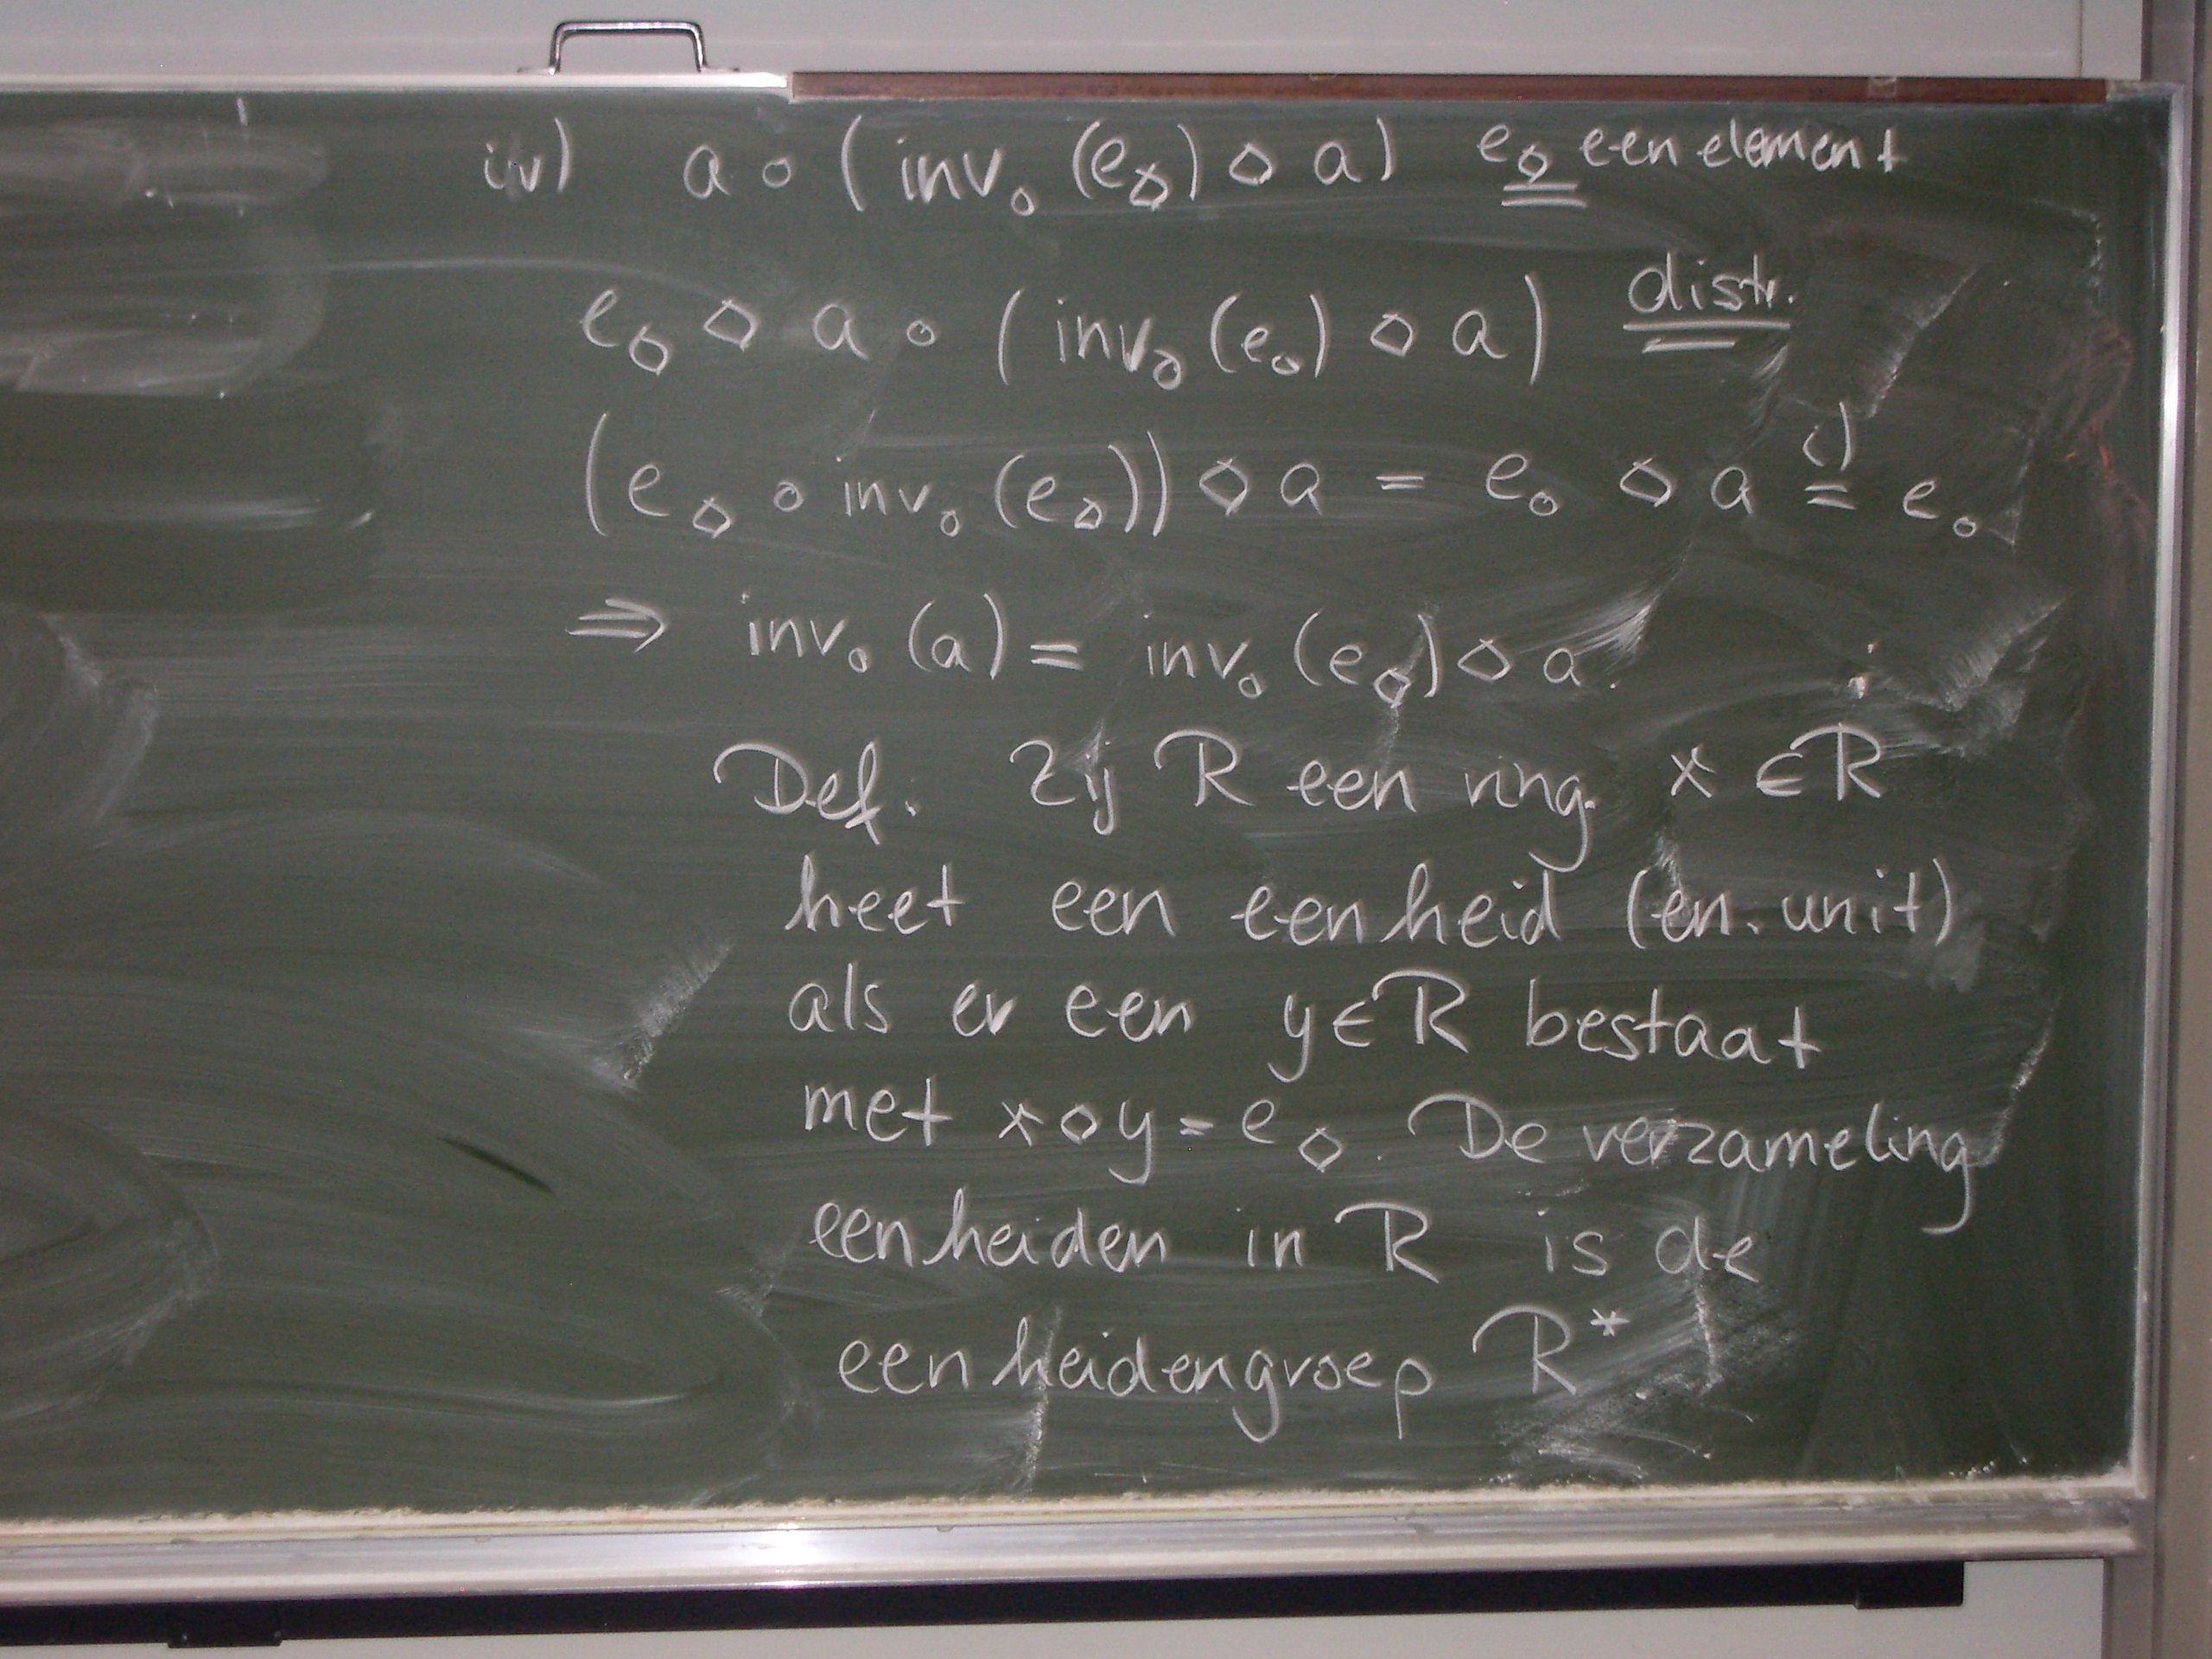 iv) a ∘ (inv∘ (e◇) ◇ a) e◇ een element
=
e◇ ◇ a ∘ (inv∘ (e◇) ◇ a) distr.
=
(e◇ ∘ inv∘ (e◇)) ◇ a = e∘ ◇ a = i) e∘
⇒ inv∘ (a) = inv∘ (e◇) ◇ a.
Def. Zij R een ring. x ∈ R
heet een eenheid (en. unit)
als er een y ∈ R bestaat
met x ◇ y = e◇. De verzameling
eenheiden in R is de
eenheidengroep R*